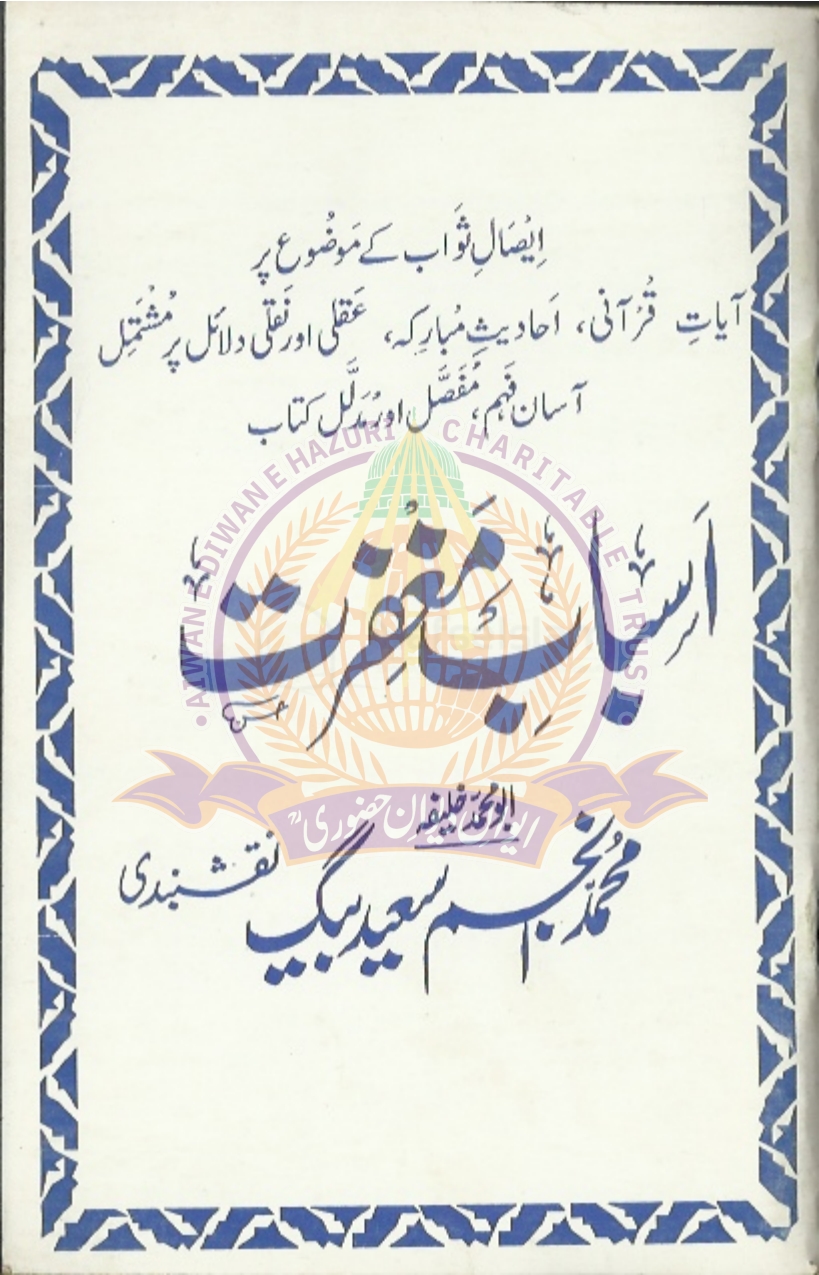 اِیصَالِ ثَوَاب کے مَوضُوع پر
آیاتِ قُرْآنی، اَحادیثِ مُبارکہ، عَقلی اور نَقلی دلائل پر مُشتَمِل
آسان فہم، مُفَصَّل اور مُدَلَّل کتاب
AIWAN E DIWAN E HAZURI CHARITABLE TRUST
اَسبابِ مَغفِرت
ابو محمد خلیفہ
ایوانِ دیوانِ حضوری
محمد انجم سعید بیگ نقشبندی